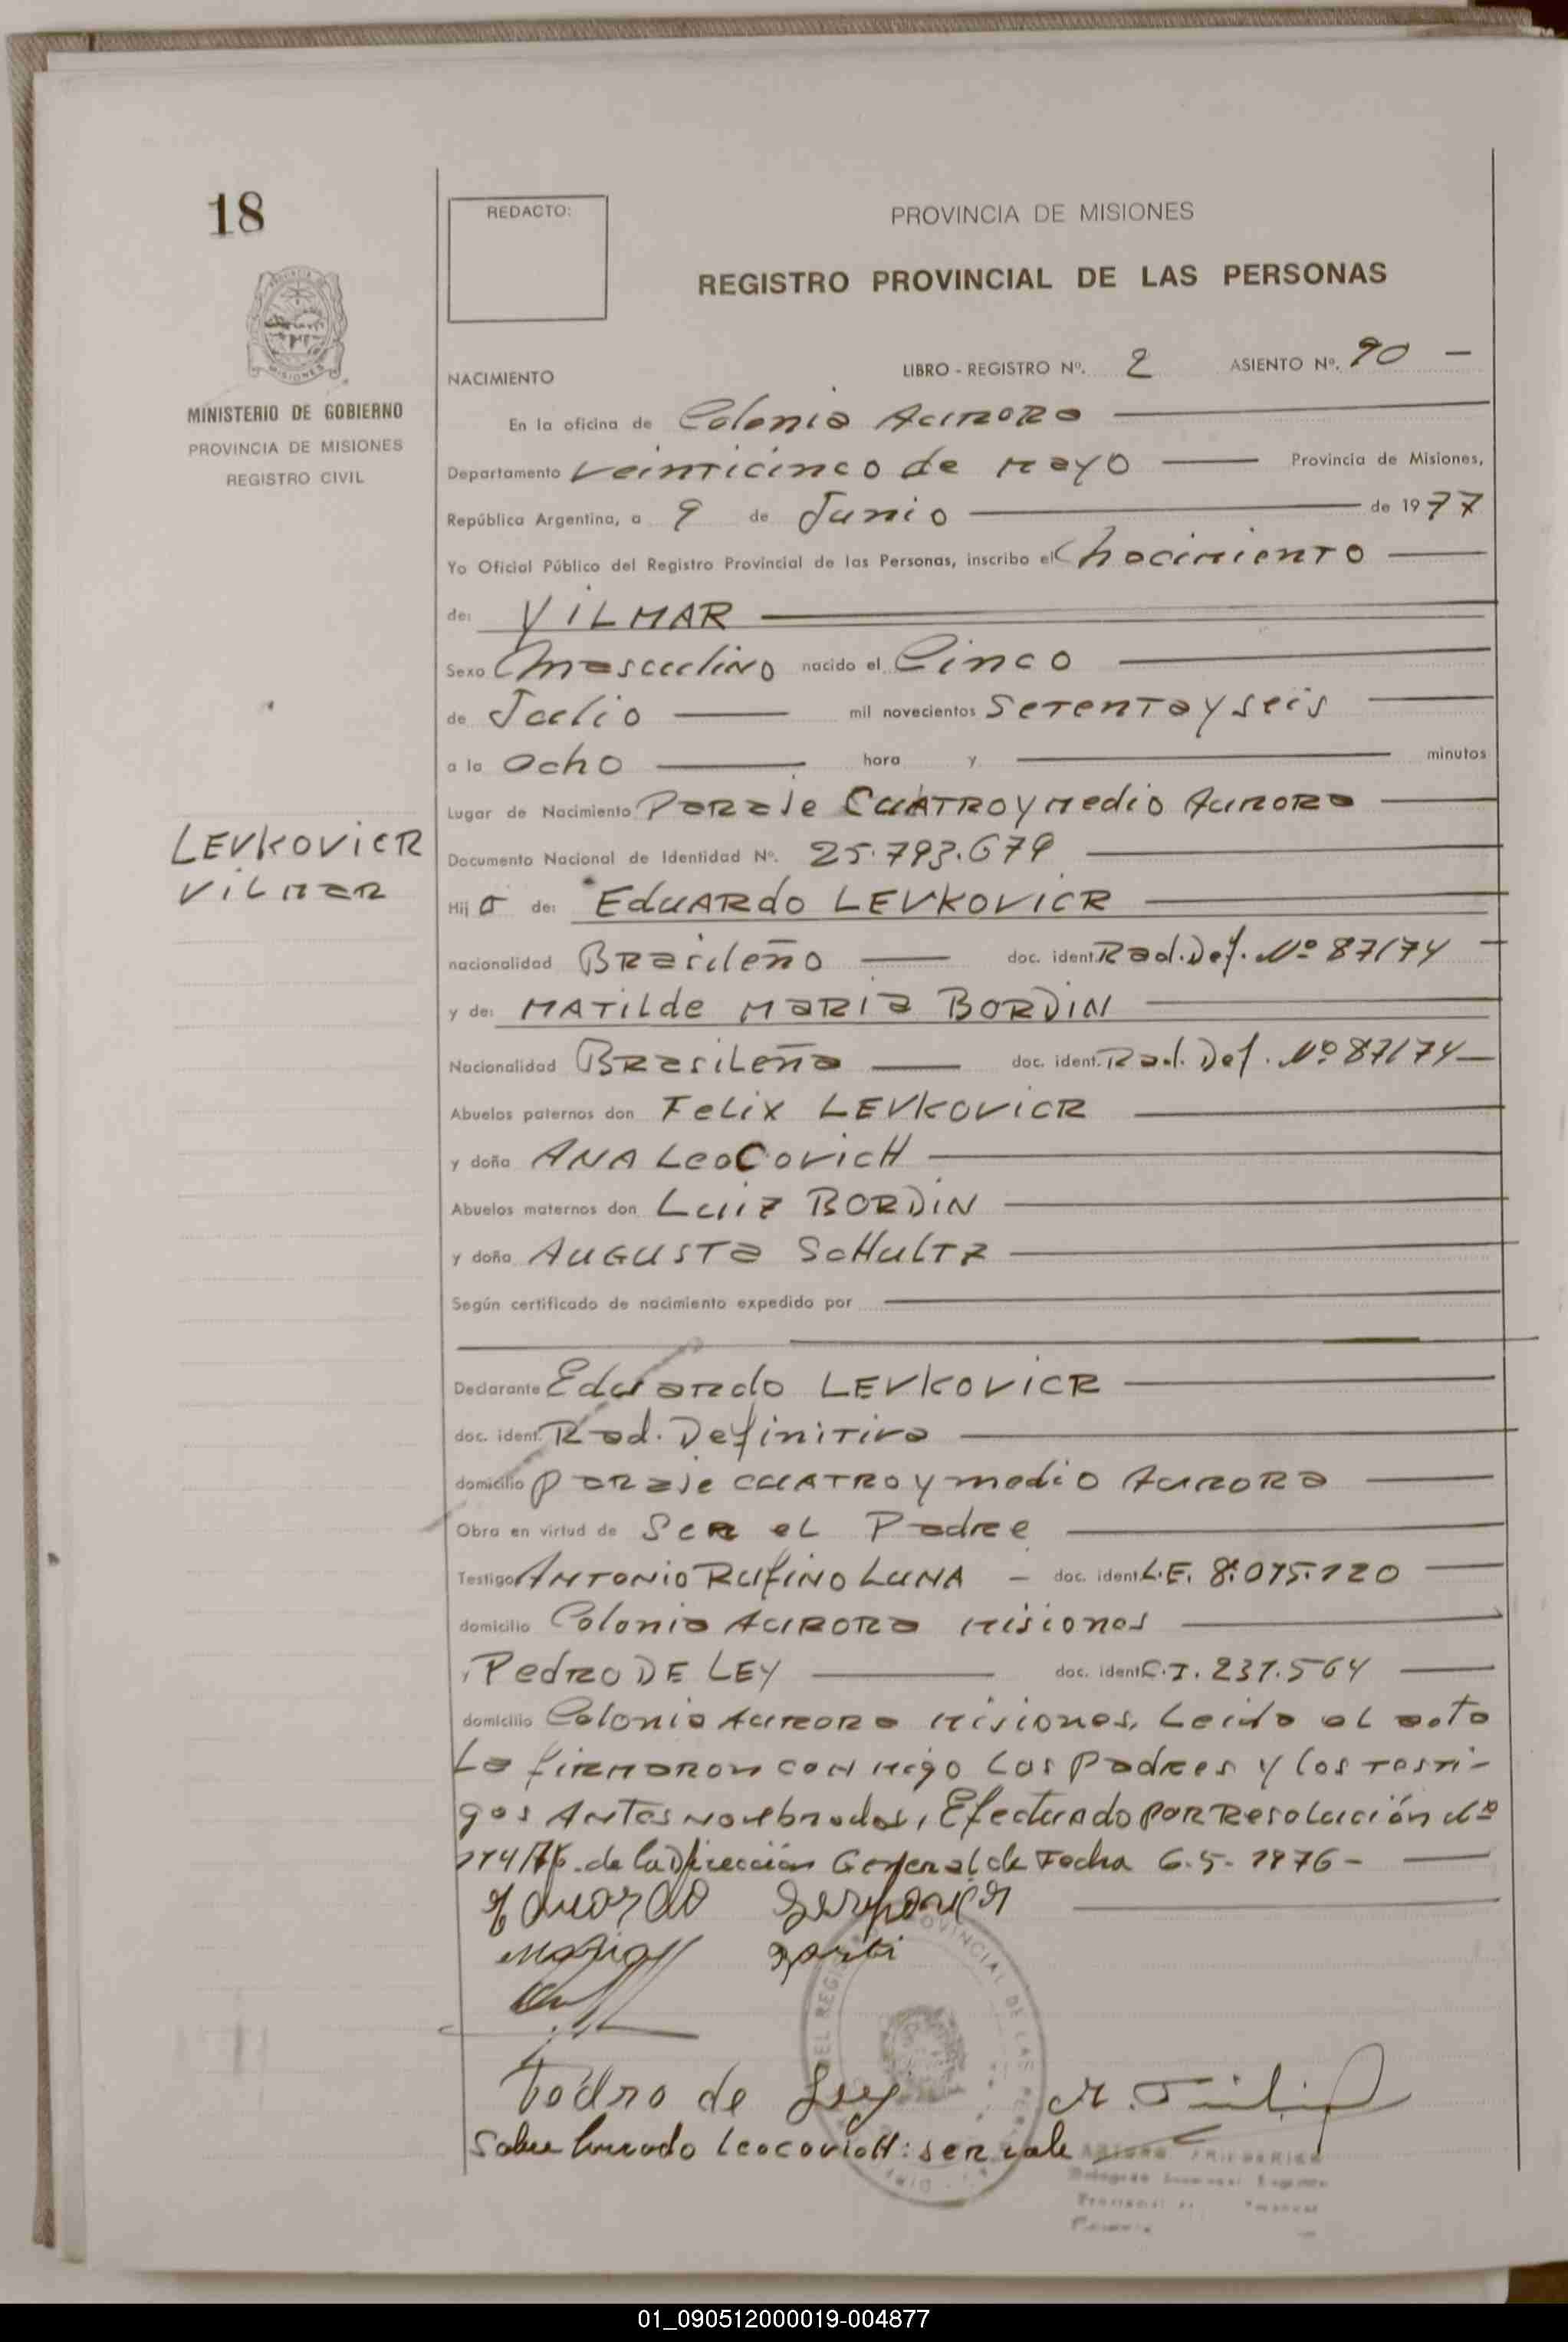 18
REDACTO:
PROVINCIA DE MISIONES
REGISTRO PROVINCIAL DE LAS PERSONAS
MINISTERIO DE GOBIERNO
PROVINCIA DE MISIONES
REGISTRO CIVIL
NACIMIENTO LIBRO - REGISTRO Nº. 2 ASIENTO Nº. 90 —
En la oficina de Colonia Aurora
Departamento Veinticinco de Mayo Provincia de Misiones,
República Argentina, a 9 de Junio de 1977
Yo Oficial Público del Registro Provincial de las Personas, inscribo el Nacimiento
de: VILMAR
Sexo Masculino nacido el Cinco
de Julio mil novecientos Setenta y seis
a la Ocho hora y minutos
Lugar de Nacimiento Paraje Cuatro y Medio Aurora
LEVKOVICR
VILMAR
Documento Nacional de Identidad Nº. 25.793.679
Hijo de: Eduardo LEVKOVICR
nacionalidad Brasileño doc. ident. Rad. Def. Nº 87174
y de: MATILde MARIA BORDIN
Nacionalidad Brasileña doc. ident. Rad. Def. Nº 87174
Abuelos paternos don Felix LEVKOVICR
y doña ANA LeoCovicH
Abuelos maternos don Luiz BORDIN
y doña AUGUSTA ScHultz
Según certificado de nacimiento expedido por
Declarante Eduardo LEVKOVICR
doc. ident. Rad. Definitiva
domicilio Paraje cuatro y medio Aurora
Obra en virtud de Ser el Padre
Testigo Antonio Rufino Luna — doc. ident. L.E. 8.075.120
domicilio Colonia Aurora Misiones
y Pedro DE LEY doc. ident. C.I. 237.564
domicilio Colonia Aurora Misiones. Leida el acta
La firmaron conmigo los Padres y los testi-
gos Antes nombrados, Efectuado por Resolución Nº
de la Dirección General de Fecha 6.5.1976 —
Eduardo
Pedro de Ley
Sobre borrado Leocovich: ser vale
01_090512000019-004877